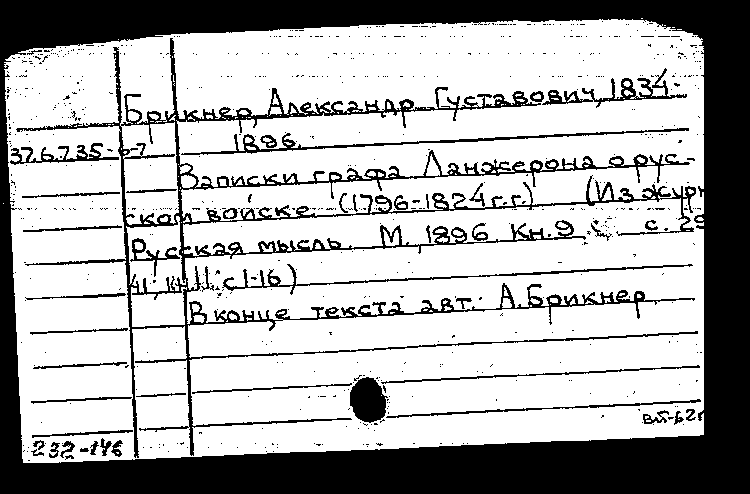 Брикнер, Александр Густавович, 1834-
37.6.7.35-6-7 1896.
Записки графа Ланжерона о рус-
ском войске. (1796-1824 г.г.) (Из журн
Русская мысль. М., 1896 Кн. 9 с. 29
41; кн. 11: с 1-16)
В конце текста авт.: А. Брикнер
232-146